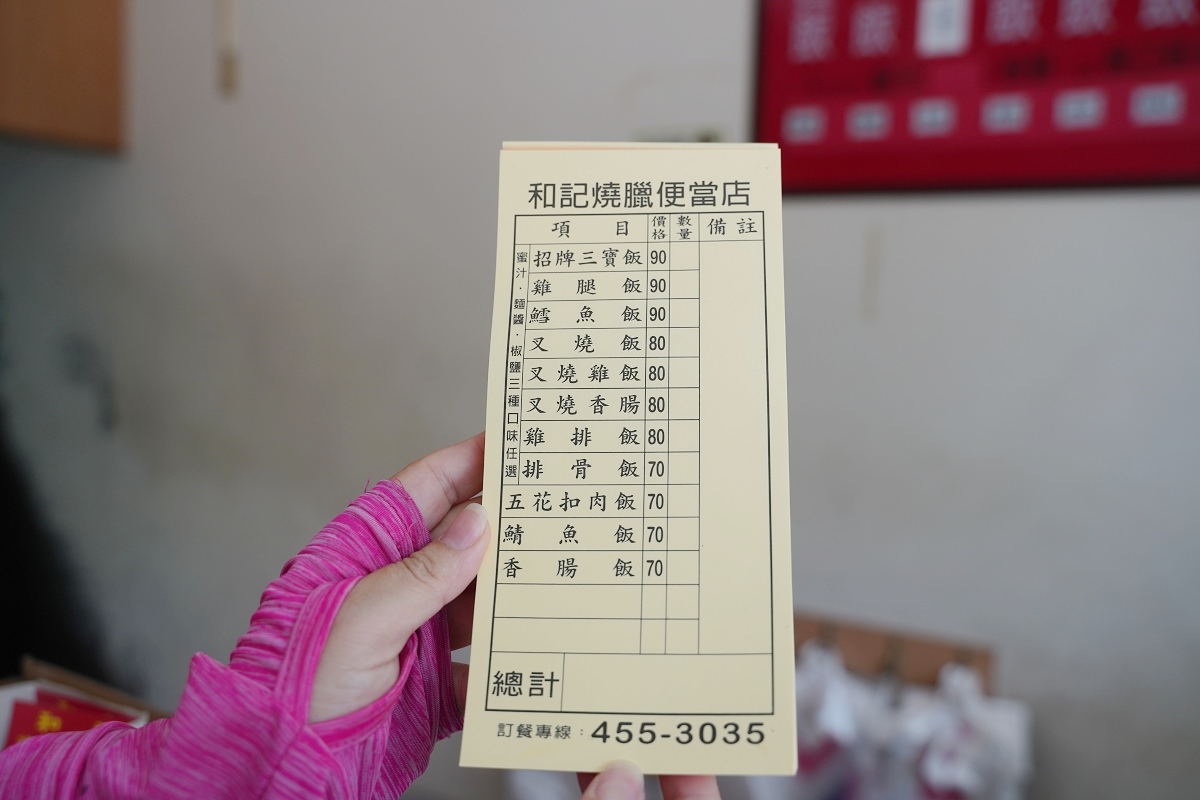 和記燒臘便當店
項目 價格 數量 備註
蜜汁．麵醬．椒鹽三種口味任選
招牌三寶飯 90
雞腿飯 90
鱈魚飯 90
叉燒飯 80
叉燒雞飯 80
叉燒香腸 80
雞排飯 80
排骨飯 70
五花扣肉飯 70
鯖魚飯 70
香腸飯 70
總計
訂餐專線：455-3035